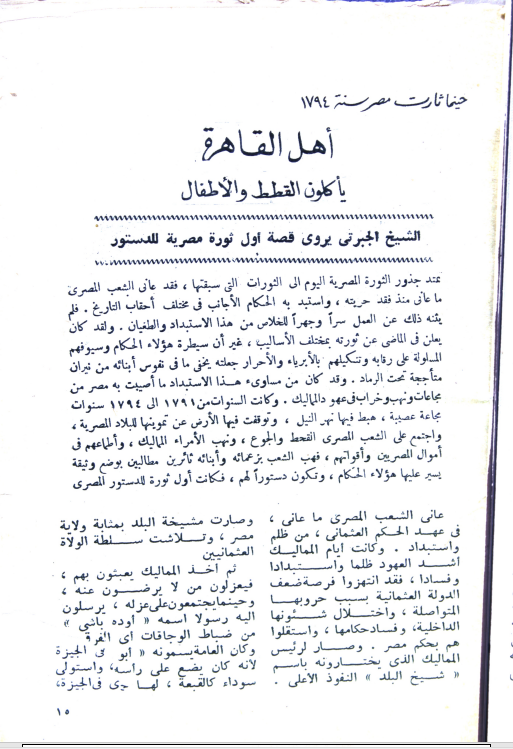 حينما ثارت مصر سنة ١٧٩٤
أهل القاهرة
يأكلون القطط والأطفال
الشيخ الجبرتى يروى قصة أول ثورة مصرية للدستور
تمتد جذور الثورة المصرية اليوم الى الثورات التى سبقتها ، فقد عانى الشعب المصرى
ما عانى منذ فقد حريته ، واستبد به الحكام الأجانب فى مختلف أحقاب التاريخ . فلم
يثنه ذلك عن العمل سراً وجهراً للخلاص من هذا الاستبداد والطغيان . ولقد كان
يعلن فى الماضى عن ثورته بمختلف الأساليب ، غير أن سيطرة هؤلاء الحكام وسيوفهم
المسلولة على رقابه وتنكيلهم بالأبرياء والأحرار جعلته يخفى ما فى نفوس أبنائه من نيران
متأججة تحت الرماد . وقد كان من مساوىء هذا الاستبداد ما أصيبت به مصر من
مجاعات ونهب وخراب فى عهود المماليك . وكانت السنوات من ١٧٩١ الى ١٧٩٤ سنوات
مجاعة عصيبة ، هبط فيها نهر النيل ، وتوقفت فيها الأرض عن تموينها للبلاد المصرية ،
واجتمع على الشعب المصرى القحط والجوع ، ونهب الأمراء المماليك ، وأطماعهم فى
أموال المصريين وأقواتهم ، فهب الشعب بزعمائه وأبنائه ثائرين مطالبين بوضع وثيقة
يسير عليها هؤلاء الحكام ، وتكون دستوراً لهم ، فكانت أول ثورة للدستور المصرى
عانى الشعب المصرى ما عانى ،
فى عهد الحكم العثمانى ، من ظلم
واستبداد . وكانت أيام المماليك
أشد العهود ظلما واستبدادا
وفسادا ، فقد انتهزوا فرصة ضعف
الدولة العثمانية بسبب حروبها
المتواصلة ، واختلال شئونها
الداخلية، وفساد حكامها ، واستقلوا
هم بحكم مصر . وصار لرئيس
المماليك الذى يختارونه باسم
« شيخ البلد » النفوذ الأعلى .
وصارت مشيخة البلد بمثابة ولاية
مصر ، وتلاشت سلطة الولاة
العثمانيين
ثم أخذ المماليك يعبثون بهم ،
فيعزلون من لا يرضون عنه ،
وحينما يجتمعون على عزله ، يرسلون
اليه رسولا اسمه « أوده باشى »
من ضباط الوجاقات أى الفرق
وكان العامة يسمونه « أبو فى الجيزة
لأنه كان يضع على رأسه، واستولى
سوداء كالقبعة ، لها فى الجيزة،
١٥